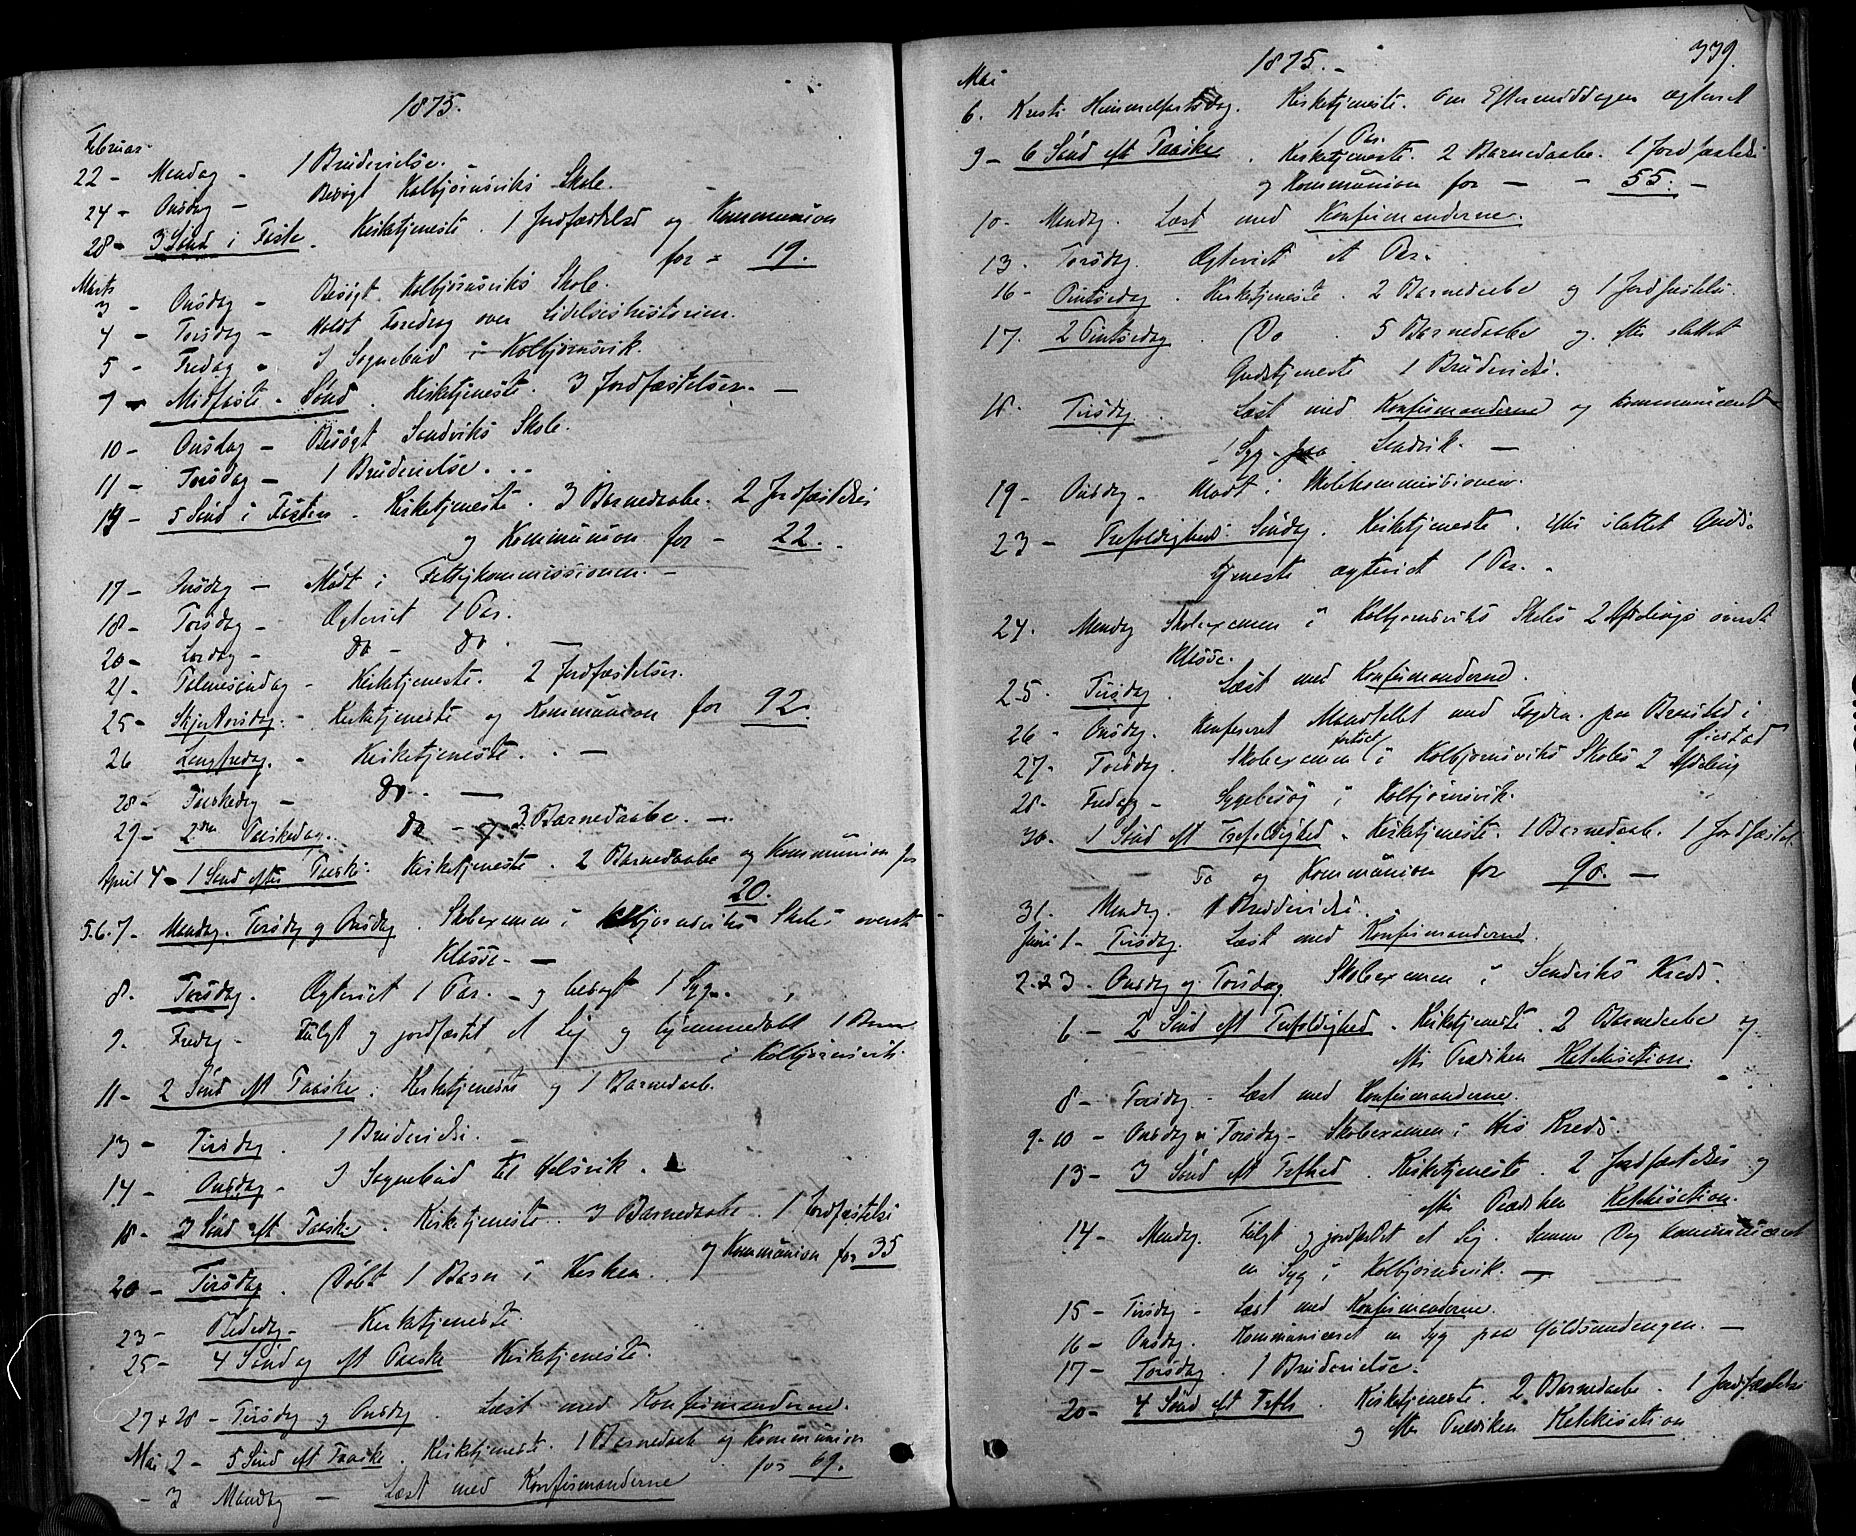 1875.
Februar.
22 - Mandag - 1 Brudevielse.
24 - Onsdag - Besøgt Kolbjørnsviks Skole.
28 - 3 Sønd i Faste. Kirketjeneste. 1 Jordfæstelse og Kommunion
for - 19.
Marts
3 - Onsdag - Besøgt Kolbjørnsviks Skole.
4 - Torsdag - Holdt Foredrag over Lidelseshistorien.
5 - Fredag - I Sognebud i Kolbjørnsvik.
7 - Midfaste - Sønd. Kirketjeneste. 3 Jordfæstelser. -
10 - Onsdag - Besøgt Sandviks Skole.
11 - Torsdag - 1 Brudevielse.
14 - 5 Sønd i Fasten. Kirketjeneste. 3 Barnedaabe. 2 Jordfæstelser
og Kommunion for - 22. -
17 - Onsdag - Mødt i Fattigkommissionen. -
18 - Torsdag - Ægteviet 1 Par.
20 - Lørdag - do - do -
21 - Palmesøndag - Kirketjeneste. 2 Jordfæstelser.
25 - Skjærtorsdag. - Kirketjeneste og Kommunion for 92.
26 Langfredag. - Kirketjeneste. -
28 - Paaskedag - do - -
29 - 2den Paaskedag. do - og 3 Barnedaabe. -
April 4 - 1 Sønd efter Paaske. Kirketjeneste. 2 Barnedaabe og Kommunion for
20.
5. 6. 7 - Mandag. Tirsdag og Onsdag. Skolexamen i Kolbjørnsviks Skoles øverste
Klasse. -
8. Torsdag. Ægteviet 1 Par. - og besøgt 1 Syg.
9. Fredag - Fulgt og jordfæstet et Lig og hjemmedøbt 1 Barn
i Kolbjørnsvik.
11 - 2 Sønd eft Paaske. Kirketjeneste og 1 Barnedaab.
13 - Tirsdag. 1 Brudevielse. -
14 - Onsdag - I Sognebud til Helsvik.
18 - 3 Sønd eft Paaske. Kirketjeneste. 3 Barnedaabe. 1 Jordfæstelse
og Kommunion for 35
20 - Tirsdag. Døbt 1 Barn i Kirken.
23 - Bededag - Kirketjeneste.
25 - 4 Søndag eft Paaske Kirketjeneste.
27 + 28 - Tirsdag og Onsdag. Læst med Konfirmanderne.
Mai 2 - 5 Sønd eft Paaske. Kirketjeneste. 1 Barnedaab og Kommunion
for 69.
- 3 Mandag - Læst med Konfirmanderne
1875. -
339.
Mai
6. Kristi Himmelfartsdag. Kirketjeneste. Om Eftermiddagen ægteviet
1 Par.
9 - 6 Sønd eft Paaske. Kirketjeneste. 2 Barnedaabe. 1 Jordfæstelse
og Kommunion for - - 55. -
10 - Mandag. Læst med Konfirmanderne.
13 - Torsdag. Ægteviet et Par.
16 - Pintsedag. Kirketjeneste. 2 Barnedaabe og 1 Jordfæstelse.
17. 2 Pintsedag. Do. 5 Barnedaabe og efter sluttet
Gudstjeneste 1 Brudevielse.
18. Tirsdag. Læst med Konfirmanderne og kommuniceret
1 Syg paa Sandvik. -
19 - Onsdag - Mødt i Skolekommissionen.
23 - Trefoldigheds Søndag. Kirketjeneste. Efter sluttet Guds-
tjeneste ægteviet 1 Par. -
24. Mandag Skolexamen i Kolbjørnsviks Skoles 2 Afdelings øverste
Klasse.
25 - Tirsdag. Læst med Konfirmanderne.
26 - Onsdag. Konfereret Mandtallet med Fogden paa Bransted i
Øiestad
27 - Torsdag. Skolexamen fortsat i Kolbjørnsviks Skoles 2 Afdeling
28 - Fredag - Sygebesøg i Kolbjørnsvik.
30 - 1 Sønd eft Trefoldighed. Kirketjeneste. 1 Barnedaab. 1 Jordfæstel-
se og Kommunion for 90. -
31. Mandag. 1 Brudevielse.
Juni 1 - Tirsdag. Læst med Konfirmanderne.
2 - 3 - Onsdag og Torsdag. Skolexamen i Sandviks Kreds.
6 - 2 Sønd eft Trefoldighed. Kirketjeneste. 2 Barnedaabe og
efter Prædiken Katekisation.
8 - Tirsdag - Læst med Konfirmanderne.
9 - 10 - Onsdag og Torsdag - Skolexamen i His Kreds.
13 - 3 Sønd eft Trefhed. Kirketjeneste. 2 Jordfæstelser og
efter Prædiken Katekisation.
14 - Mandag. Fulgt og jordfæstet et Lig. Samme Dag kommuniceret
en Syg i Kolbjørnsvik. -
15 - Tirsdag - Læst med Konfirmanderne.
16 - Onsdag. Kommuniceret en Syg paa Guldsmedengen. -
17 - Torsdag. 1 Brudevielse.
20 - 4 Sønd eft Trefh. Kirketjeneste. 2 Barnedaabe. 1 Jordfæstelse
og efter Prædiken Katekisation